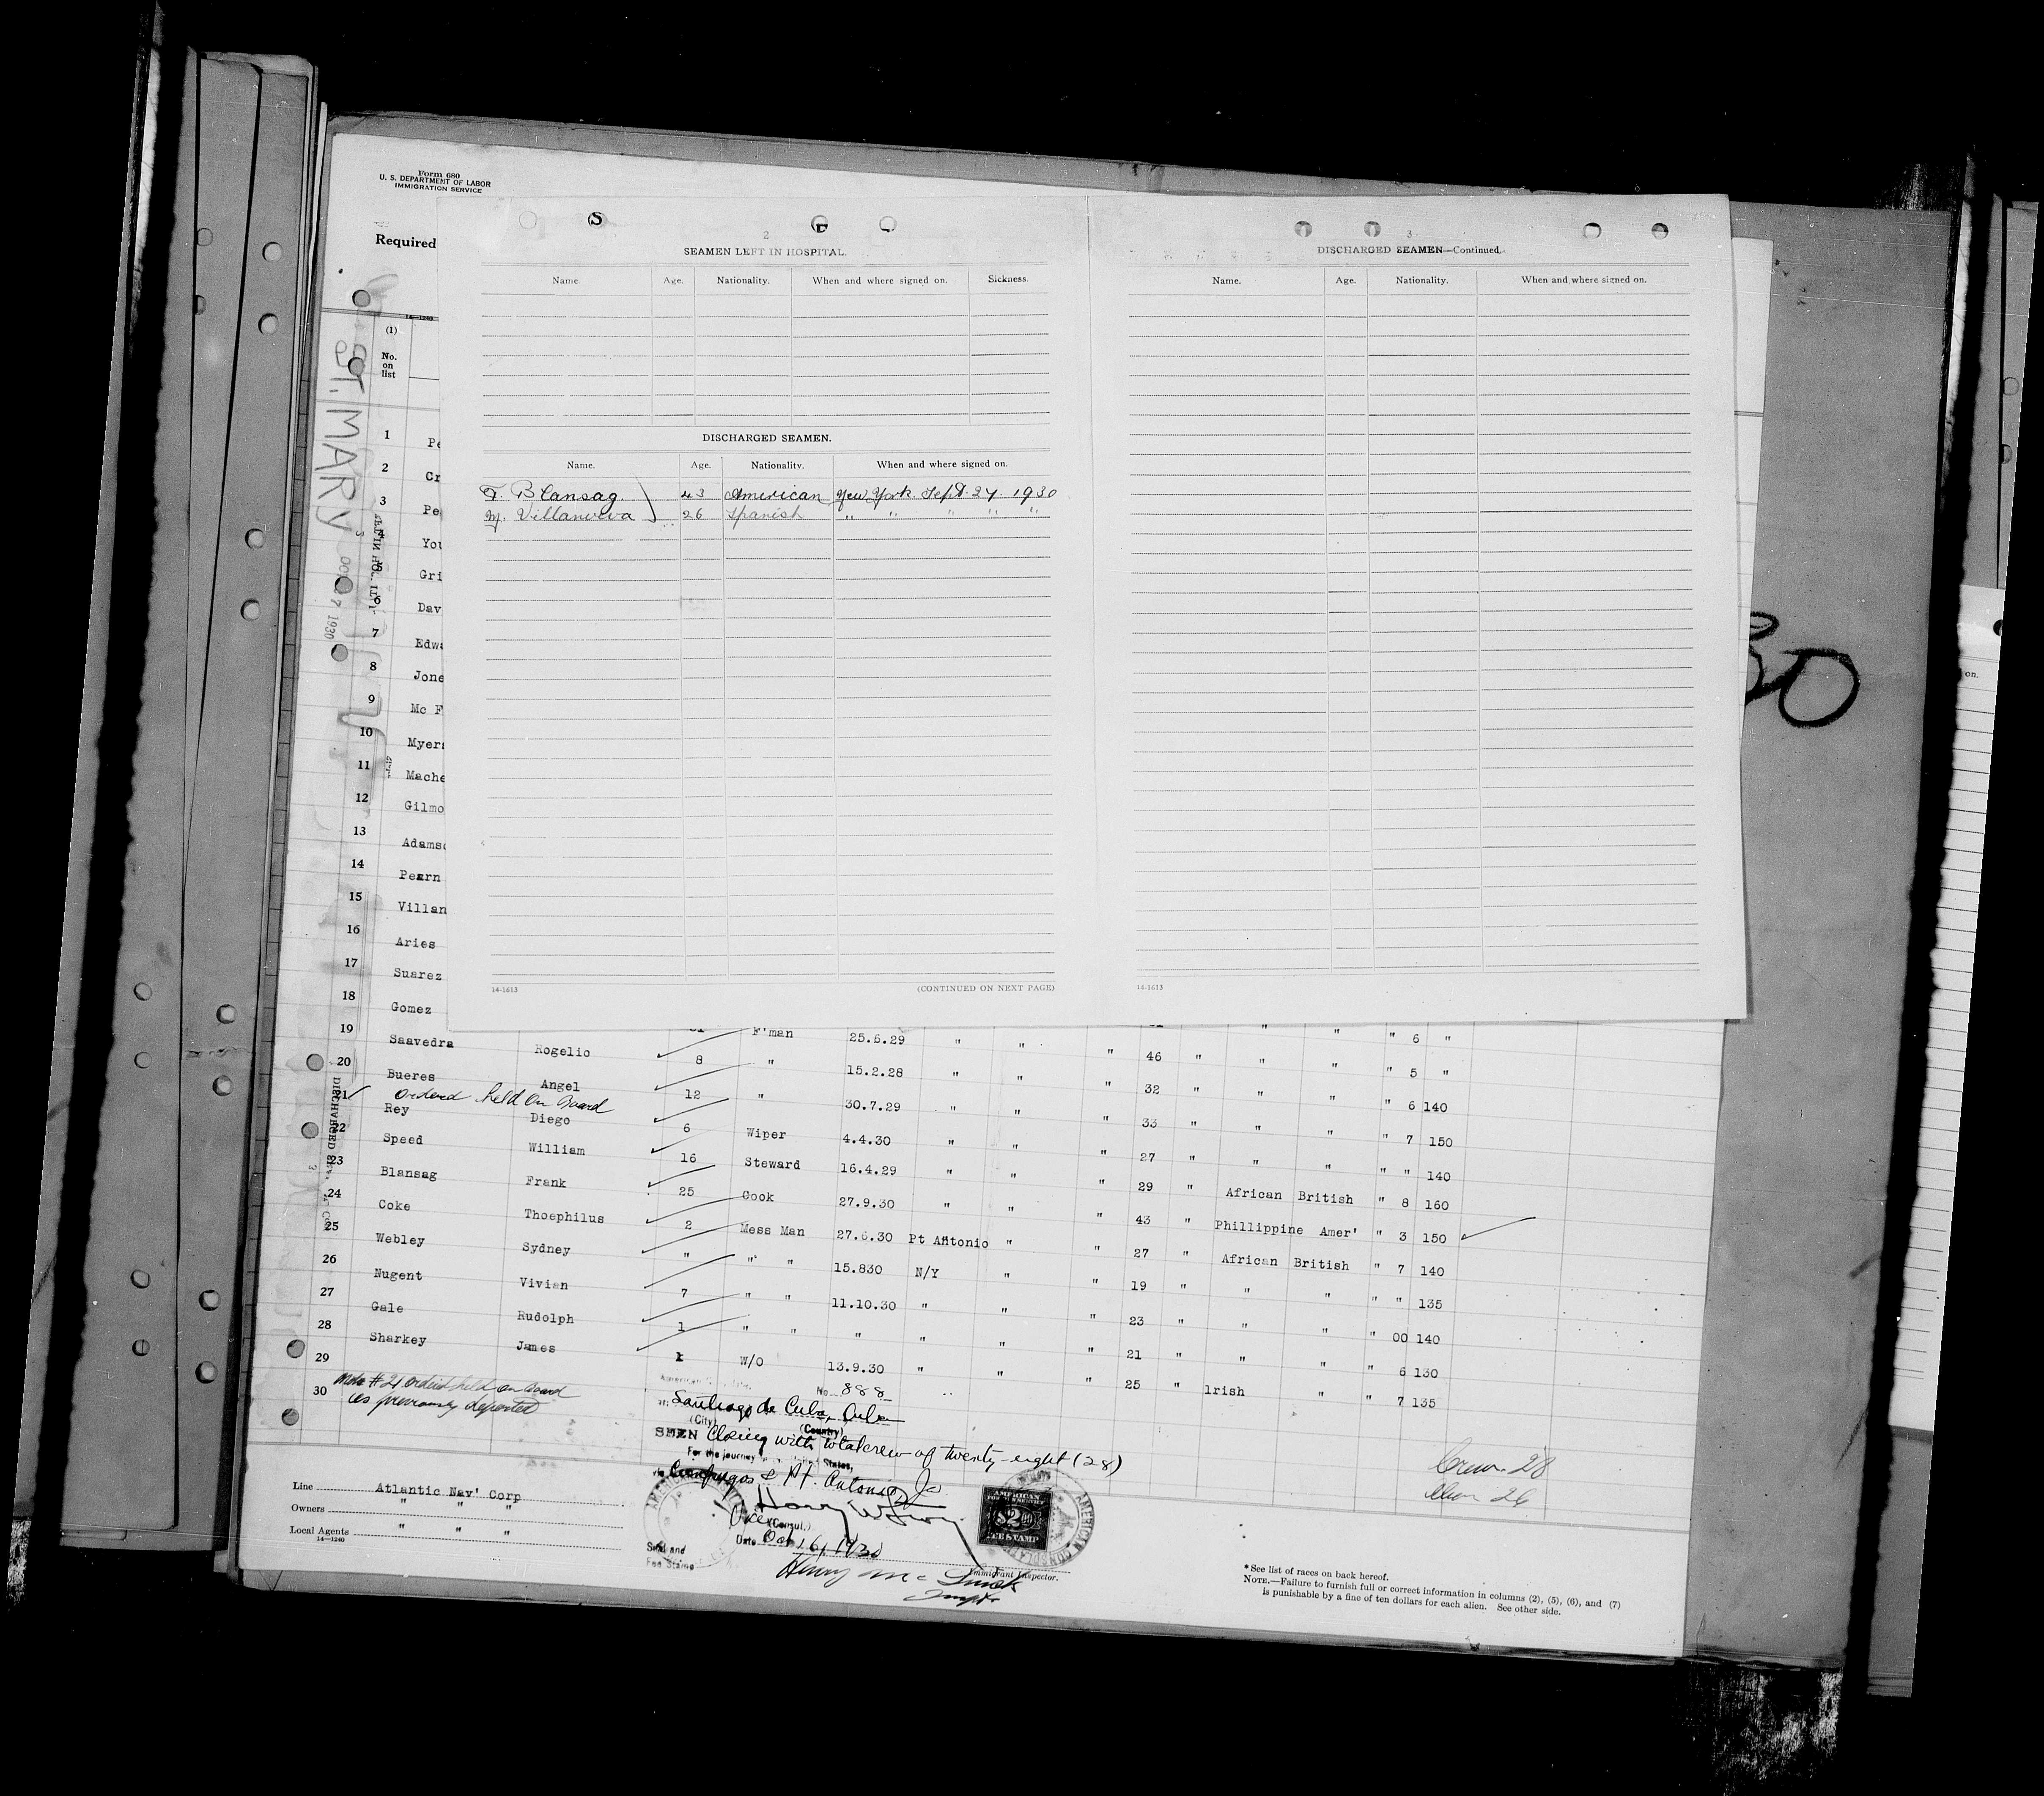 Form 680
U. S. DEPARTMENT OF LABOR
IMMIGRATION SERVICE
Required
ST. MARY
1930
14—1240
(1)
No. on list
2
SEAMEN LEFT IN HOSPITAL.
Name Age. Nationality. When and where signed on. Sickness.
DISCHARGED SEAMEN.
Name. Age. Nationality. When and where signed on.
F. Blansag. 43 American New York. Sept. 27. 1930
M. Villanueva 26 Spanish " " " " "
14-1613
(CONTINUED ON NEXT PAGE)
3
DISCHARGED SEAMEN—Continued.
Name. Age. Nationality. When and where signed on.
14-1613
30
on.
1 Pe
2 Cr
3 Pe
4 You
5 Gri
6 Dav
7 Edwa
8 Jone
9 Mc F
10 Myer
11 Mache
12 Gilmo
13 Adamso
14 Pearn
15 Villan
16 Aries
17 Suarez
18 Gomez F'man 25.6.29 " " " 6 "
19 Saavedra Rogelio 8 " 15.2.28 " " " 46 " " " " 5 "
20 Bueres Angel 12 " 30.7.29 " " " 32 " " " " 6 140
Ordered held on Board
21 Rey Diego 6 Wiper 4.4.30 " " " 33 " " " " 7 150
22 Speed William 16 Steward 16.4.29 " " " 27 " " " " " 140
23 Blansag Frank 25 Cook 27.9.30 " " " 29 " African British " 8 160
24 Coke Thoephilus 2 Mess Man 27.6.30 Pt Antonio " " 43 " Phillippine Amer' " 3 150
25 Webley Sydney " " " 15.830 N/Y " " 27 " African British " 7 140
26 Nugent Vivian 7 " " 11.10.30 " " " 19 " " " " " 135
27 Gale Rudolph 1 " " " " " " 23 " " " " 00 140
28 Sharkey James 1 W/O 13.9.30 " " " 21 " " " " 6 130
29 25 " Irish " " 7 135
30
Note #21 ordered held on board
as previously deported
No. 888
Santiago de Cuba, Cuba
(City) (Country)
SEEN Closing with total crew of twenty-eight (28)
For the journey States,
via Cienfuegos & Pt. Antonio, Ja
Vice (Consul.)
Date Oct 16, 1930
Seal and
Fee Stamp
AMERICAN
$2.00
FEE STAMP
AMERICAN CONSULATE
Immigrant Inspector.
Crew 28
Line Atlantic Nav' Corp
Owners " " "
Local Agents " " "
14—1240
*See list of races on back hereof.
NOTE.—Failure to furnish full or correct information in columns (2), (5), (6), and (7)
is punishable by a fine of ten dollars for each alien. See other side.